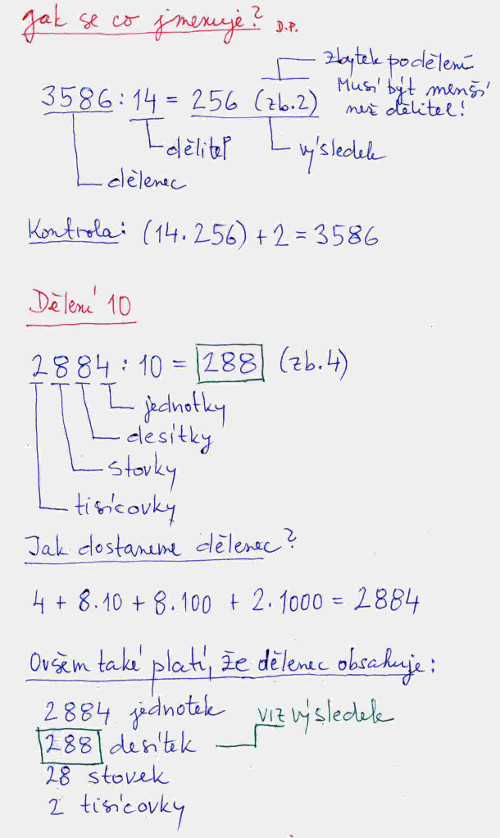 Jak se co jmenuje? D.P.
zbytek po dělení
Musí být menší
než dělitel!
3586 : 14 = 256 (zb. 2)
dělitel
výsledek
dělenec
Kontrola: (14 . 256) + 2 = 3586
Dělení 10
2884 : 10 = 288 (zb. 4)
jednotky
desítky
stovky
tisícovky
Jak dostaneme dělenec?
4 + 8.10 + 8.100 + 2.1000 = 2884
Ovšem také platí, že dělenec obsahuje:
2884 jednotek
288 desítek viz výsledek
28 stovek
2 tisícovky